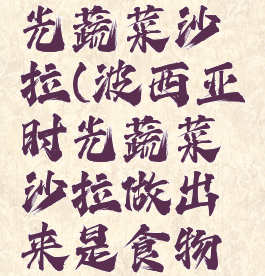 先蔬菜沙
拉(波西亚
时光蔬菜
沙拉做出
来是食物